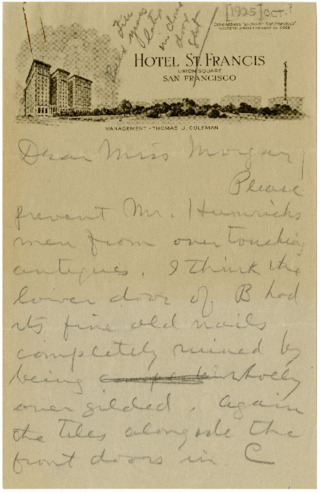 [1925] [Oct.]
HOTEL ST. FRANCIS
UNION SQUARE
SAN FRANCISCO
MANAGEMENT - THOMAS J. COLEMAN
Dear Miss Morgan
Please
prevent Mr. Humrichs
men from over touching
antiques. I think the
lower door of B had
its fine old nails
completely ruined by
being wholly
over gilded. Again
the tiles alongside the
front doors in C